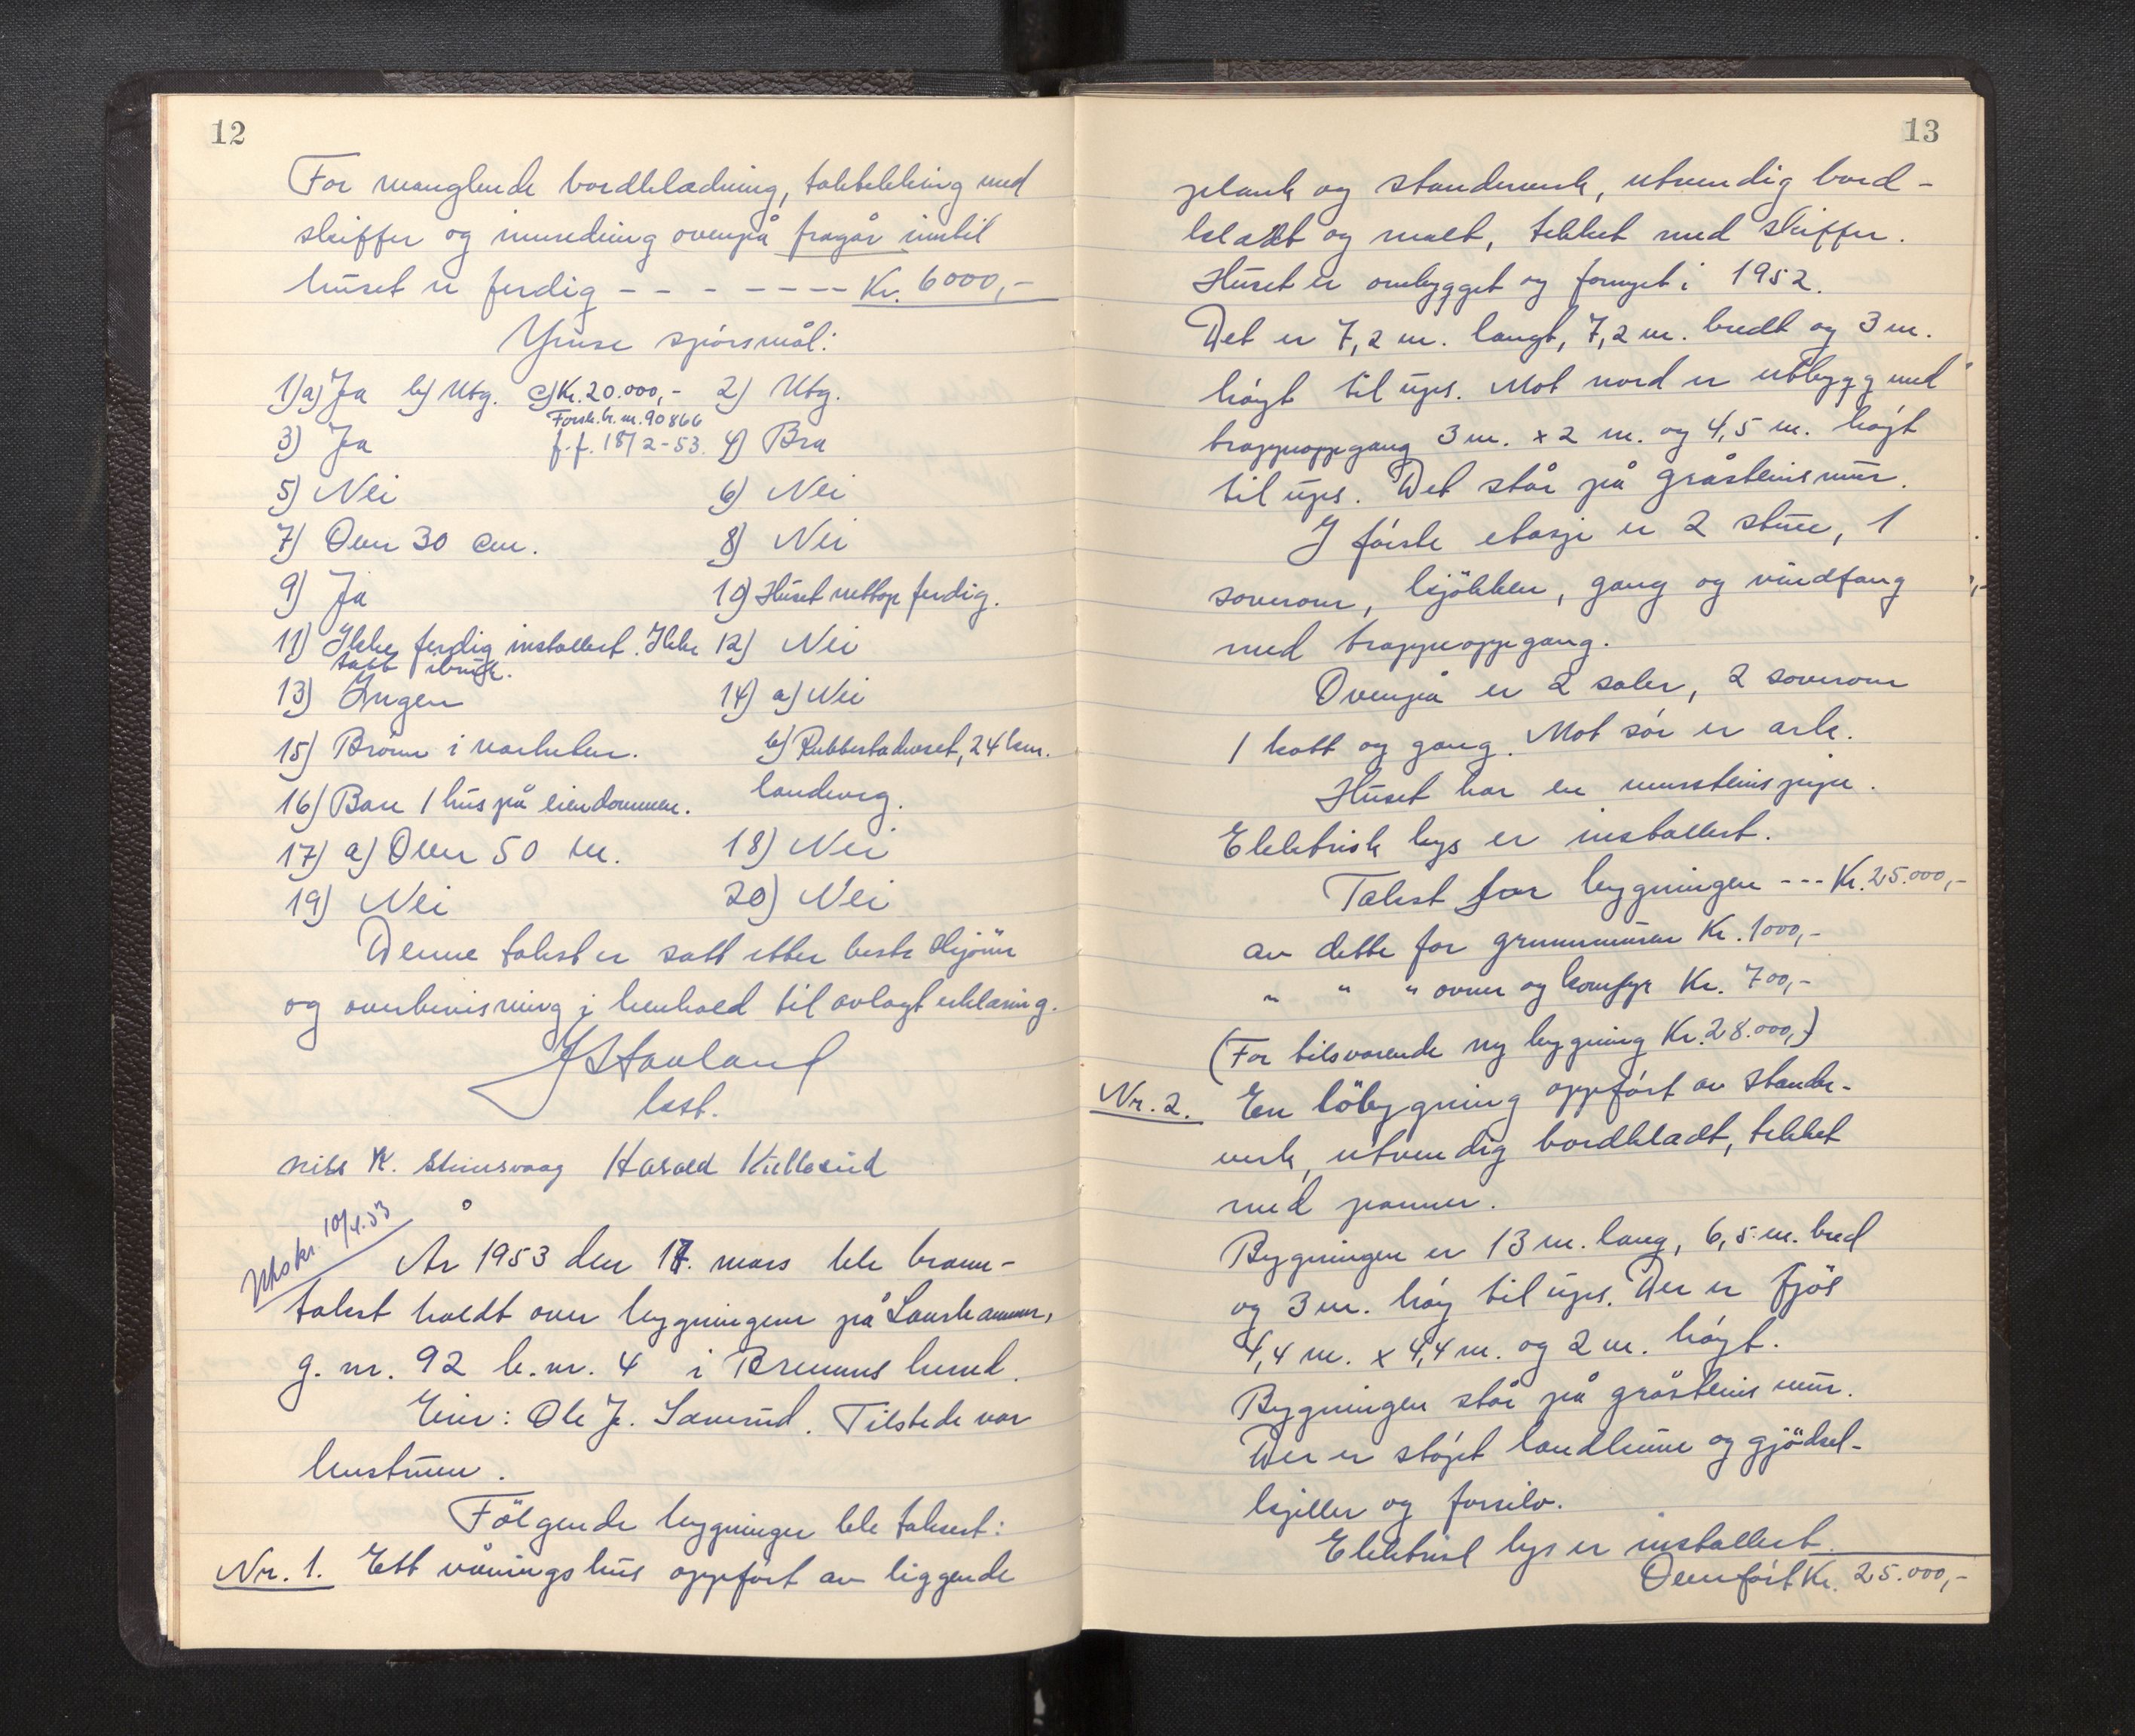 12
For manglende bordkledning, taktekking med
skiffer og innredning ovenpå fragår inntil
huset er ferdig - - - - - - - Kr. 6000,-
Ymse spörsmål:
1) a) Ja b) Utg. c) Kr. 20.000,- 2) Utg.
Forsk. br. nr. 90866
3) Ja f.f. 18/2-53. 4) Bra
5) Nei 6) Nei
7) Over 30 cm. 8) Nei
9) Ja 10) Huset nettop ferdig.
11) Ikke ferdig installert. Ikke 12) Nei
tatt i bruk.
13) Ingen 14) a) Nei
15) Brönn i nærheten. b) Rubbestadneset, 24 km.
16) Bare 1 hus på eiendommen. landveg.
17) a) Over 50 m. 18) Nei
19) Nei 20) Nei
Denne takst er satt etter beste skjönn
og overbevisning i henhold til avlagt erklæring.
J Stavland
lest.
Nils K. Steinsvaag Harald Kulleseid
Utskr. 10/4.53
År 1953 den 17. mars ble brann-
takst holdt over bygningene på Lønshammer,
g. nr. 92 b. nr. 4 i Bremnes herred.
Eier: Ole J. Tilstede var
hustruen.
Fölgende bygninger ble taksert:
Nr. 1. Ett våningshus oppfört av liggende
13
plank og standerverk, utvendig bord-
kledt og malt, tekket med skiffer.
Huset er ombygget og fornyet i 1952.
Det er 7,2 m. langt, 7,2 m. bredt og 3 m.
högt til ups. Mot nord er utbygg med
trappeoppgang 3 m. x 2 m. og 4,5 m. högt
til ups. Det står på gråsteinsmur.
I förste etasje er 2 stuer, 1
soverom, kjökken, gang og vindfang
med trappeoppgang.
Ovenpå er 2 saler, 2 soverom
1 kott og gang. Mot sör er ark.
Huset har en mursteinspipe.
Elektrisk lys er installert.
Takst for bygningen --- Kr. 25.000,-
av dette for grunnmuren Kr. 1000,-
" " " ovner og komfyr Kr. 700,-
(For tilsvarende ny bygning Kr. 28.000,-)
Nr. 2. En löbygning oppfört av stander-
verk, utvendig bordkladt, tekket
med panner.
Bygningen er 13 m. lang, 6,5 m. bred
og 3 m. höy til ups. Der er fjös
4,4 m. x 4,4 m. og 2 m. högt.
Bygningen står på gråsteinsmur.
Der er stöpt landkum og gjödsel-
kjeller og forsilo.
Elektrisk lys er installert.
Overfört Kr. 25.000,-